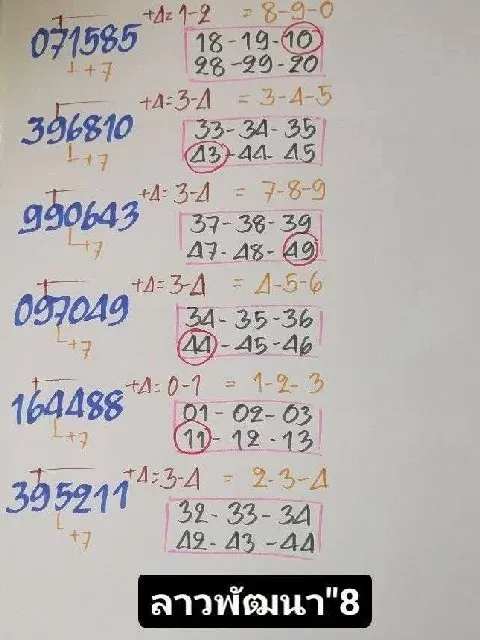 +4=1-2 = 8-9-0
071585
18-19-10
28-29-20
+7
+4=3-4 = 3-4-5
396810
33-34-35
43-44-45
+7
+4=3-4 = 7-8-9
990643
37-38-39
47-48-49
+7
+4=3-4 = 4-5-6
097049
34-35-36
44-45-46
+7
+4=0-1 = 1-2-3
164488
01-02-03
11-12-13
+7
+4=3-4 = 2-3-4
395211
32-33-34
42-43-44
+7
ลาวพัฒนา"8